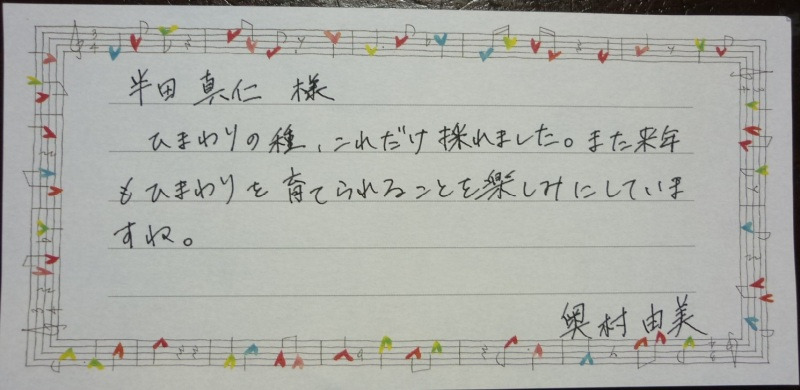 半田 真仁 様
ひまわりの種、これだけ採れました。また来年
もひまわりを育てられることを楽しみにしていま
すね。
奥村由美